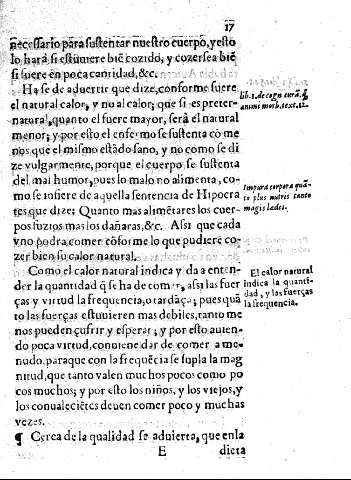 17
necessario para sustentar nuestro cuerpo, y esto
lo hará si estuuiere biẽ cozido, y cozerse a biẽ
si fuere en poca cantidad, &c.
Ha se de aduertir que dize, conforme fuere
el natural calor, y no al calor; que si es preter-
natural, quanto el fuere mayor, será el natural
menor; y por esto el enfermo se sustenta cõ me
nos que el mismo estãdo sano, y no como se di
ze vulgarmente, porque el cuerpo se sustenta
del mal humor, pues lo malo no alimenta, co-
mo se infiere de aquella sentencia de Hipocra
tes que dize: Quanto mas alimẽtares los cuer
pos suzios mas los dañaras, &c. Assi que cada
vno podra comer cõforme lo que pudiere co
zer bien su calor natural.
Como el calor natural indica y da a enten-
der la quantidad q̃ se ha de comer, assi las fuer
ças y virtud la frequencia, o tardãça; pues quã
to las fuerças estuuieren mas debiles, tanto me
nos pueden çufrir y esperar; y por esto auien-
do poca virtud, conuiene dar de comer a me-
nudo, para que con la frequẽcia se supla la mag
nitud, que tanto valen muchos pocos como po
cos muchos; y por esto los niños, y los viejos, y
los conualeciẽtes deuen comer poco y muchas
vezes.
¶ Cerca de la qualidad se aduierta, que en la
E dieta
lib. 1. de cogn. curã. q̃
animi morb. text. 12.
Impura corpora quã-
to plus nutries tanto
magis ledes.
El calor natural
indica la quanti-
dad, y las fuerças
la frequencia.